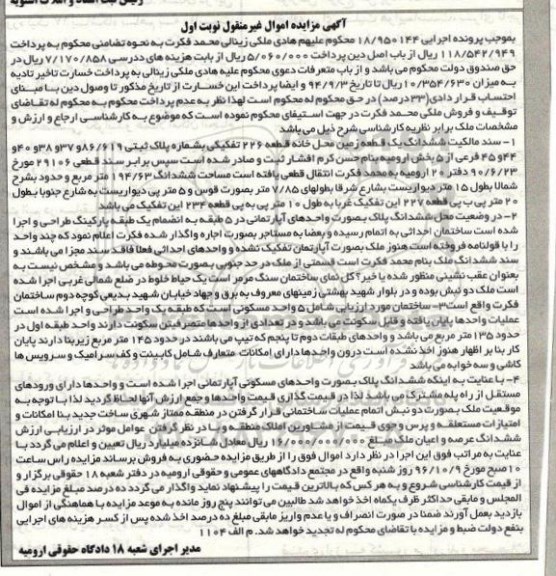 آگهی مزایده اموال غیرمنقول نوبت اول
بموجب پرونده اجرایی 18/950144 محکوم علیهم هادی ملکی زینالی محمد فکرت به نحوه تضامنی محکوم به پرداخت
118/542/949 ریال از باب اصل دین پرداخت 5/060/000 ریال از بابت هزینه های دادرسی 7/170/858 ریال در
حق صندوق دولت محکوم می باشد و از باب متفرعات دعوی محکوم علیه هادی ملکی زینالی به پرداخت خسارت تاخیر تادیه
به میزان 10/354/630 ریال تا تاریخ 94/9/3 و ایضا پرداخت این خسارت از تاریخ مذکور تا وصول دین با مبنای
احتساب قرار دادی (33 درصد) در حق محکوم له محکوم است لهذا نظر به عدم پرداخت محکوم به محکوم له تقاضای
توقیف و فروش ملکی محمد فکرت در جهت استیفای محکوم نموده است که موضوع به کارشناسی ارجاع و ارزش و
مشخصات ملک برابر نظریه کارشناسی شرح ذیل می باشد
1- سند مالکیت ششدانگ یک قطعه زمین محل خانه قطعه 226 تفکیکی بشماره پلاک ثبتی 86/619 و 37 و 38 و 40 و
44 و 45 فرعی از 5 بخش ارومیه بنام حسن کرم افشار ثبت و صادر شده است سپس برابر سند قطعی 29106 مورخ
90/6/23 دفتر 20 ارومیه به محمد فکرت انتقال قطعی یافته است مساحت ششدانگ 194/63 متر مربع و حدود بشرح
شمالا بطول 15 متر دیواریست بشارع شرقا بطولهای 7/85 متر بصورت قوس و 5 متر پی دیواریست به شارع جنوبا بطول
20 متر پی ب پی قطعه 227 این تفکیک غربا به طول 10 متر پی به پی قطعه 234 این تفکیک می باشد
2- در وضعیت محل ششدانگ پلاک بصورت واحدهای آپارتمانی در 5 طبقه به انضمام یک طبقه پارکینگ طراحی و اجرا
شده است ساختمان احداثی به اتمام رسیده و بعضا به مستاجر بصورت اجاره واگذار شده فکرت اعلام نمود که چند واحد
را با قولنامه فروخته است هنوز ملک بصورت آپارتمان تفکیک نشده و واحدهای احداثی فعلا فاقد سند مجزا می باشند و
سند ششدانگ ملک بنام محمد فکرت است قسمتی از ملک در حد جنوبی بصورت محوطه می باشد و مشخص نیست به
بعنوان عقب نشینی منظور شده یا خیر؟ کل نمای ساختمان سنگ مرمر است یک حیاط خلوط در ضلع شمالی غربی اجرا شده
است ملک دو نبش بوده و در بلوار شهید بهشتی زمینهای معروف به برق و جهاد خیابان شهید بدیعی کوچه دوم ساختمان
فکرت واقع است 3- ساختمان مورد ارزیابی شامل 5 واحد مسکونی است که طبقه یک واحد طراحی و اجرا شده است
عملیات واحدها پایان یافته و قابل سکونت می باشد و در تعدادی از واحدها متصرفین سکونت دارند واحد طبقه اول در
حدود 135 متر مربع می باشد و واحدهای طبقات دوم تا پنجم که تیپ می باشند در حدود 145 متر مربع زیربنا دارند پایان
کار بنا بر اظهار هنوز اخذ نشده است درون واحدها دارای امکانات متعارف شامل کابینت و کف سرامیک و سرویس ها
کاشی و سه خوابه می باشد
4- با عنایت به اینکه ششدانگ پلاک بصورت واحدهای مسکونی آپارتمانی اجرا شده است و واحدها دارای ورودهای
مستقل از راه پله مشترک می باشد لذا در قیمت گذاری قیمت واحدها و جمع ارزش آنها لحاظ گردید لذا با توجه به
موقعیت ملک بصورت دو نبش اتمام عملیات ساختمانی قرار گرفتن در منطقه ممتاز شهری ساخت جدید بنا امکانات و
امتیازات مستعلقه و پرس و جوی قیمت از مشاورین املاک منطقه و با در نظر گرفتن عوامل موثر در ارزیابی ارزش
ششدانگ عرصه و اعیان ملک مبلغ 16/000/000/000 ریال معادل شانزده میلیارد ریال تعیین و اعلام می گردد با
عنایت به مراتب فوق این اجرا در نظر دارد اموال فوق را از طریق مزایده حضوری به فروش برساند مزایده راس ساعت
10 صبح مورخ 96/10/9 روز شنبه واقع در مجتمع دادگاههای عمومی و حقوقی ارومیه در دفتر شعبه 18 حقوقی برگزار و
از قیمت کارشناسی شروع و به هر کس که بالاترین قیمت را پیشنهاد نماید واگذار می گردد ده درصد مبلغ مزایده فی
المجلس و مابقی حداکثر ظرف یکماه اخذ خواهد شد طالبین می توانند پنج روز مانده به موعد مزایده با هماهنگی از اموال
بازدید بعمل آورند ضمنا در صورت انصراف و یا عدم واریز مابقی مبلغ ده درصد اخذ شده پس از کسر هزینه های اجرایی
بنفع دولت ضبط و مزایده با تقاضای محکوم له تجدید خواهد شد. م الف 1104
مدیر اجرای شعبه 18 دادگاه حقوقی ارومیه